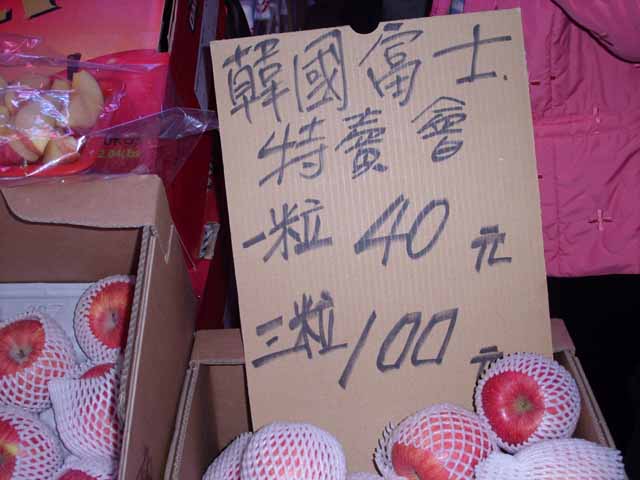 韓國富士
特賣會
一粒 40 元
三粒 100 元